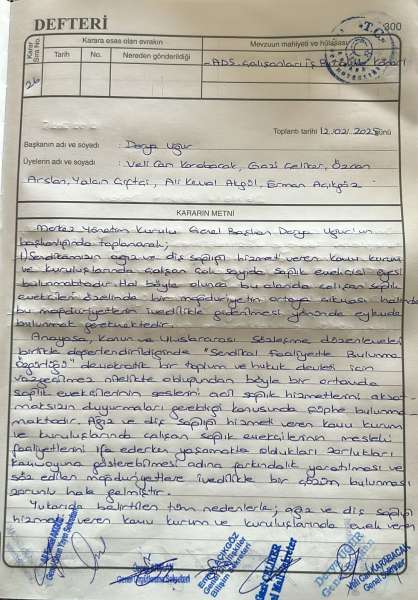 DEFTERİ
300
Karar Sıra No.
Karara esas olan evrakın
Mevzuun mahiyeti ve hülasası
Tarih
No.
Nereden gönderildiği
26
-ADS Çalışanları İş Kararı
T.C.
Toplantı tarihi 12.02.2025 günü
Başkanın adı ve soyadı : Derya Uğur
Üyelerin adı ve soyadı : Veli Can Karabacak, Gazi Çelikel, Özcan
Arslan, Yalçın Çiftçi, Ali Kemal Akgöl, Erman Açıkgöz
KARARIN METNİ
Merkez Yönetim Kurulu Genel Başkan Derya Uğur'un
başkanlığında toplanarak;
1) Sendikamızın ağız ve diş sağlığı hizmeti veren kamu kurum
ve kuruluşlarında çalışan çok sayıda sağlık emekçisi üyesi
bulunmaktadır. Hal böyle olunca bu alanda çalışan sağlık
emekçileri özelinde bir mağduriyetin ortaya çıkması halinde
bu mağduriyetlerin ivedilikle giderilmesi yönünde eylemde
bulunmak gerekmektedir.
Anayasa, Kanun ve Uluslararası Sözleşme düzenlemeleri
birlikte değerlendirildiğinde "Sendikal Faaliyette Bulunma
Özgürlüğü" demokratik bir toplum ve hukuk devleti için
vazgeçilmez nitelikte olduğundan böyle bir ortamda
sağlık emekçilerinin seslerini acil sağlık hizmetlerini aksat-
maksızın duyurmaları gerektiği konusunda şüphe bulunma-
maktadır. Ağız ve diş sağlığı hizmeti veren kamu kurum
ve kuruluşlarında çalışan sağlık emekçilerinin mesleki
faaliyetlerini ifa ederken yaşamakta oldukları zorlukları
kamuoyuna gösterebilmesi adına farkındalık yaratılması ve
söz edilen mağduriyetlere ivedilikle bir çözüm bulunması
zorunlu hale gelmiştir.
Yukarıda belirtilen tüm nedenlerle; ağız ve diş sağlığı
hizmeti veren kamu kurum ve kuruluşlarında emek veren
Genel Basın Yayın Sekreteri
Erman AÇIKGÖZ
Bilişim Sekreteri
Gazi ÇELİKEL
Genel Mali Sekreter
Derya UĞUR
Genel Başkan
Veli Can KARABACAK
Genel Sekreter